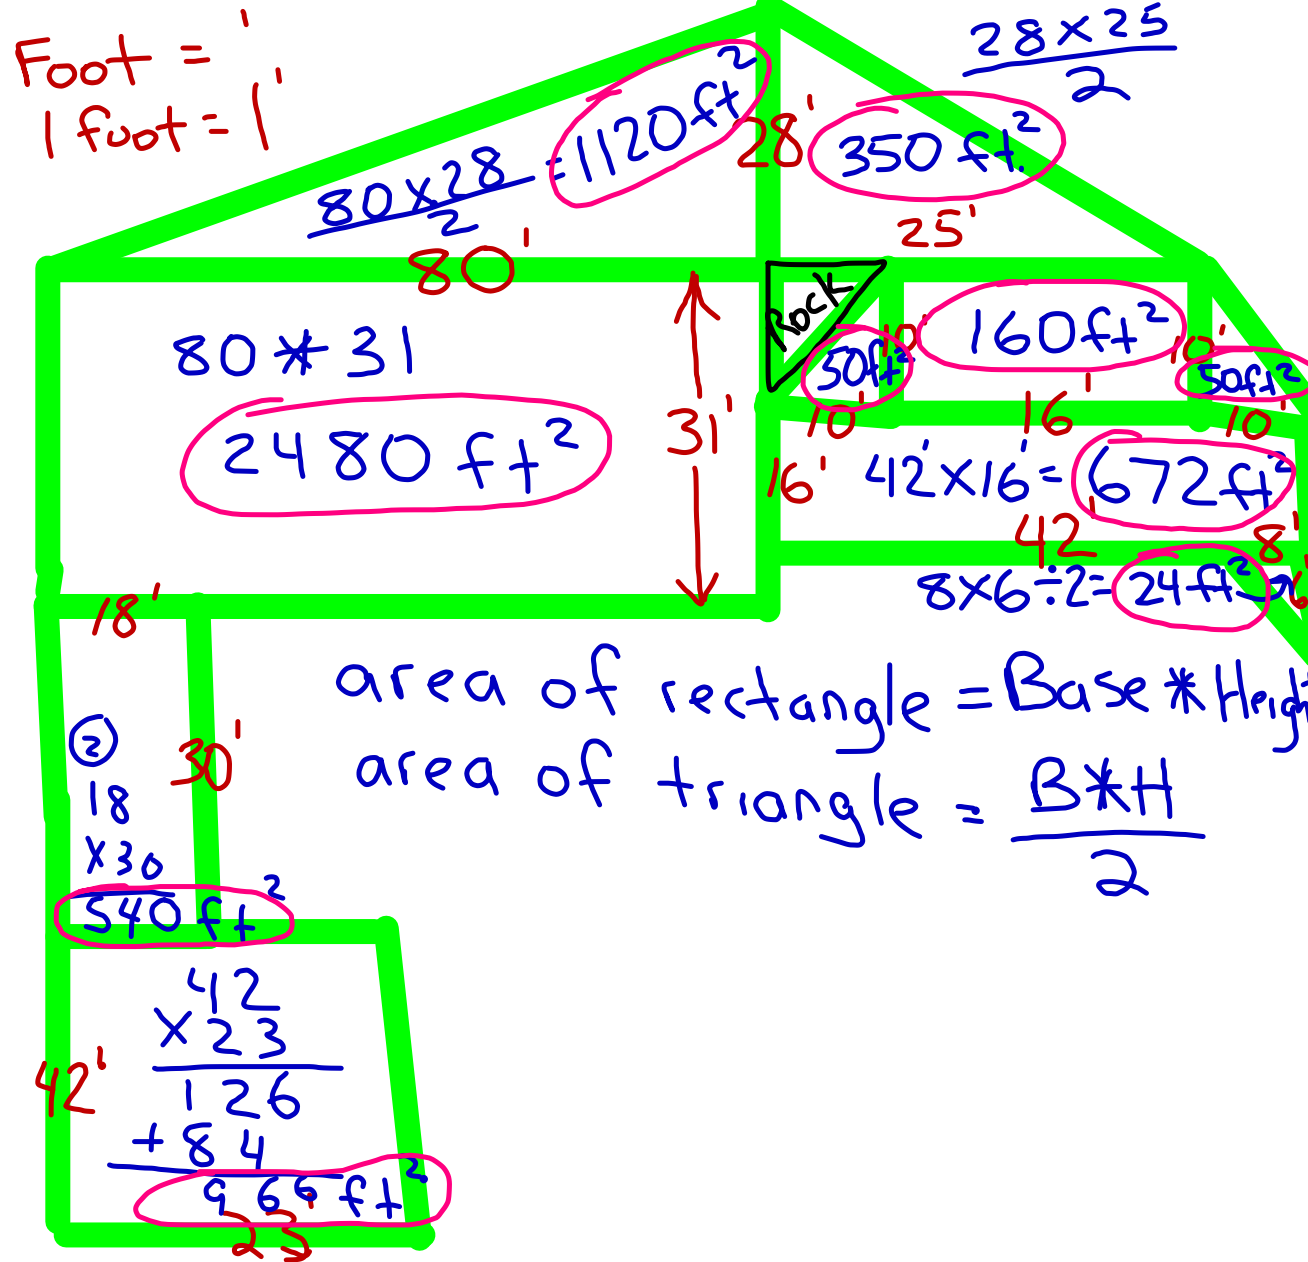 Foot = '
1 foot = 1'
28 x 25
2
80 x 28
2
= 1120 ft²
28'
350 ft.²
25'
80'
Rock
80 * 31
2480 ft²
31'
10'
160 ft²
10'
50 ft²
50 ft²
10'
16'
10'
16'
42' x 16' = 672 ft²
42'
8'
8 x 6 ÷ 2 = 24 ft²
18'
area of rectangle = Base * Height
area of triangle = B*H
2
30'
②
18
x 30
540 ft²
42
x 23
126
+ 84
966 ft²
42'
23'